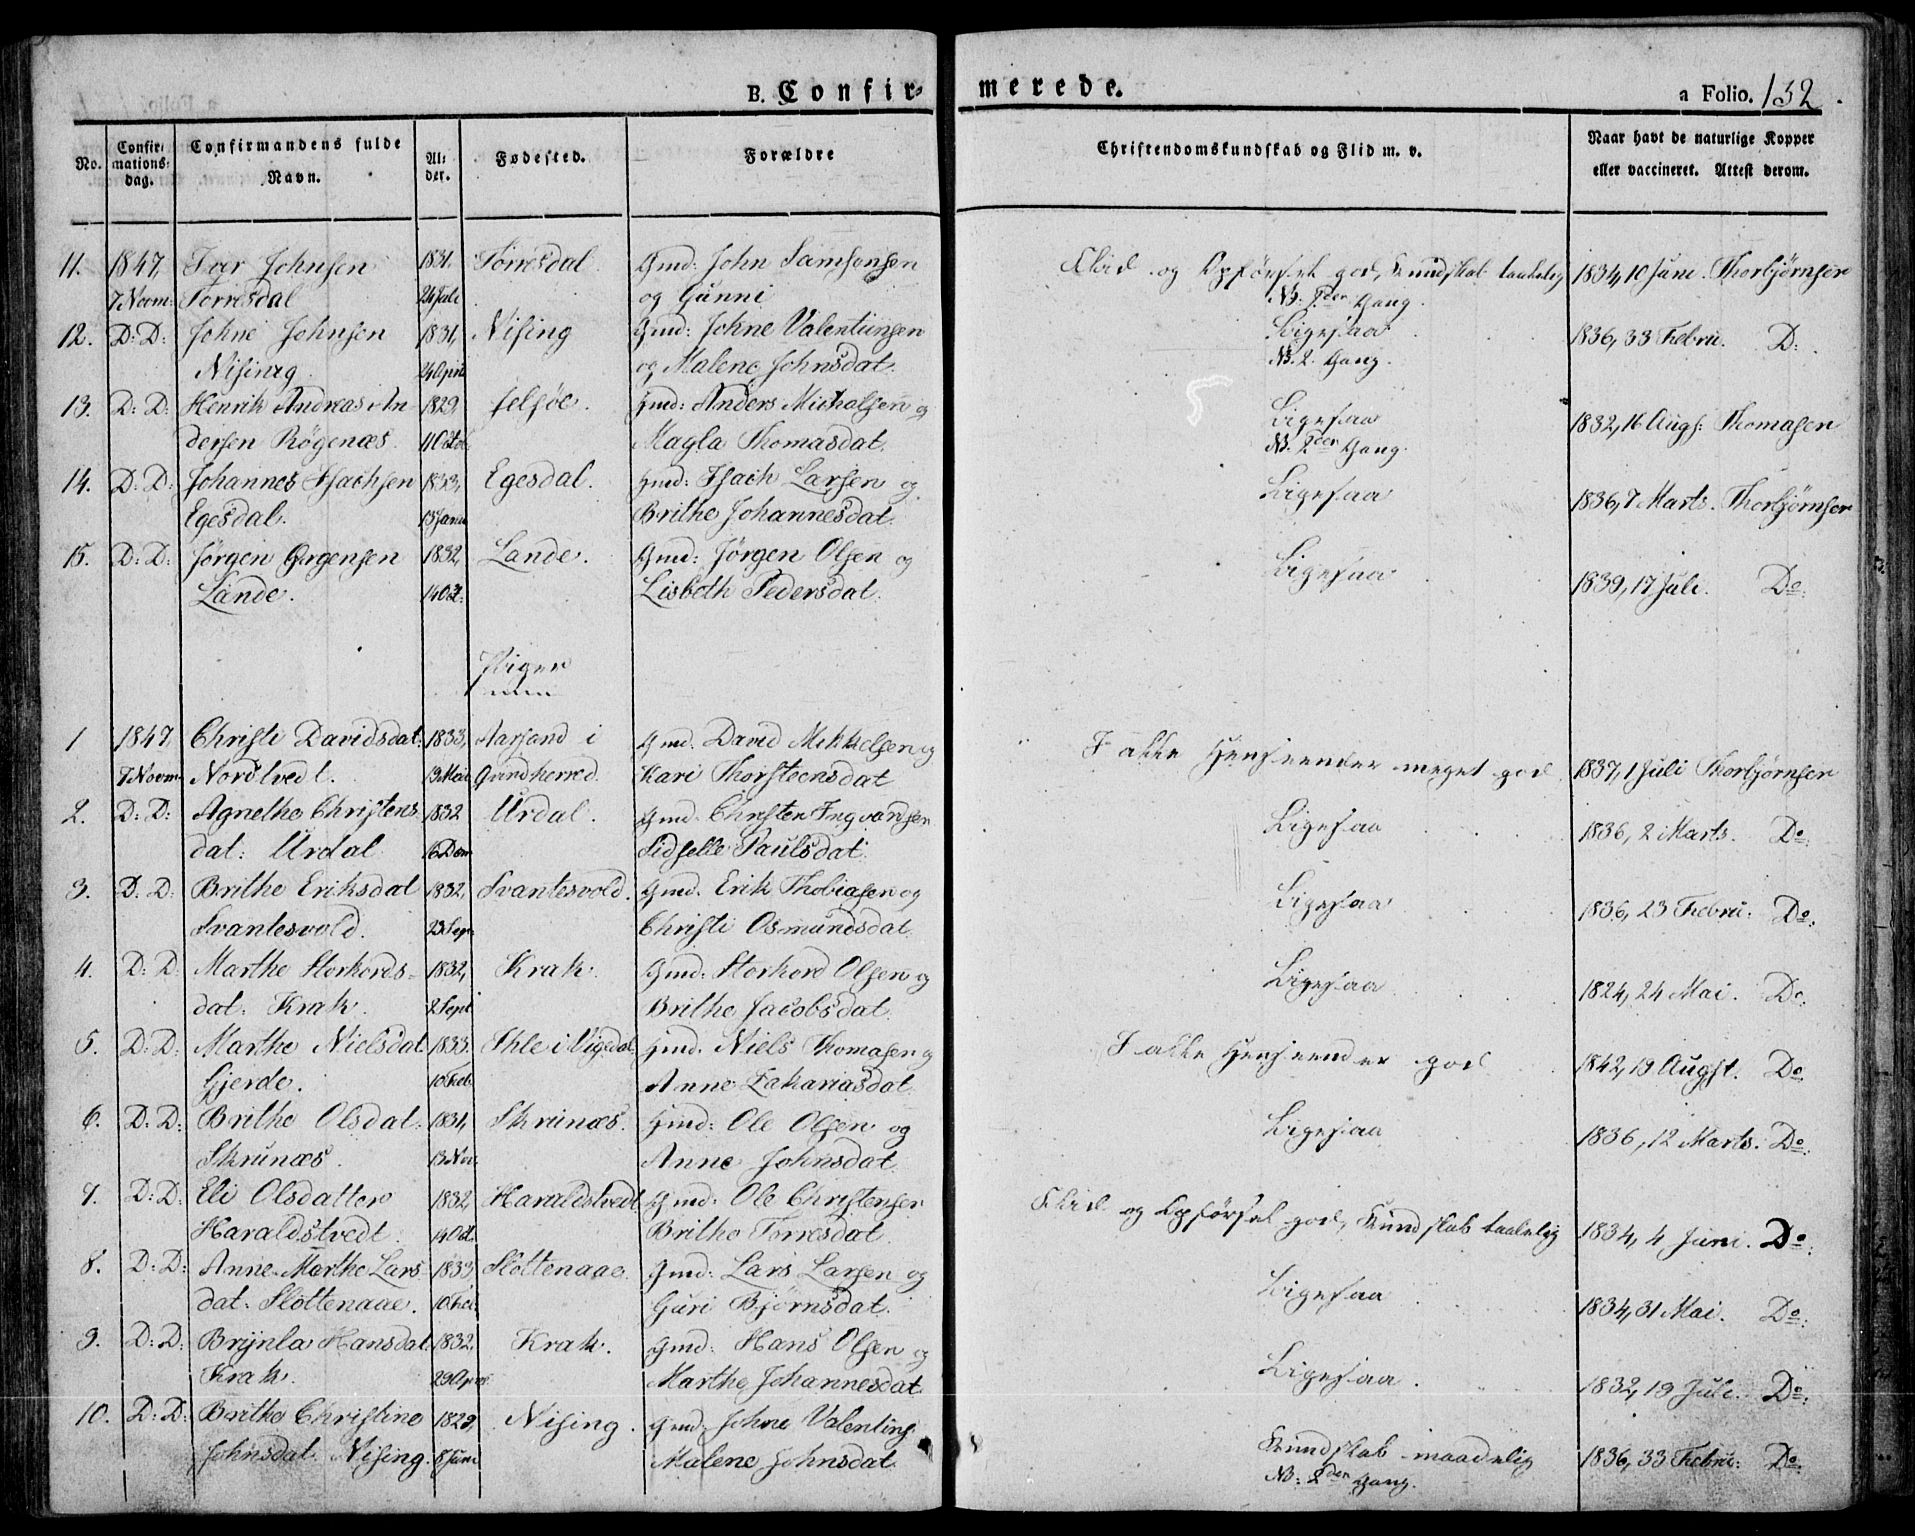 B. Confirmerede. a Folio. 132
No. Confirmations-dag. Confirmandens fulde Navn. Alder. Fødested. Forældre Christendomskundskab og Flid m. v. Naar havt de naturlige Kopper eller vaccineret. Attest derom.
11. 1847, Ivar Johnsen 1831. Torresdal. Gmd: John Samsonsen Flid og Opførsel god, Kundskab taalelig 1834, 10 Juni. Thorbjørnsen
7 Novm: Torresdal 24 Juli og Gunni NB: 2den Gang.
12. D: D: Johne Johnsen 1831, Nising Gmd: Johne Valentinsen Ligesaa 1836, 33 Febru. D:
Nising. 24 April og Malene Johnsdat. NB. 2. Gang.
13. D: D: Henrik Andreas An- 1829 Gmd: Anders Michalsen og Ligesaa 1832, 16 Augs: Thomasen
dersen Røgenæs. 11 Octob. Magla Thomasdat. NB. 2den Gang.
14. D: D: Johannes Isachsen 1833, Egesdal. Gmd: Isach Larsen og Ligesaa 1836, 7 Marts. Thorbjørnsen
Egesdal. 13 Janu Brithe Johannesdat.
15. D: D: Jørgen Jørgensen 1832, Lande. Gmd: Jørgen Olsen og Ligesaa 1839, 17 Juli. Do:
Lande. 14 Oct: Lisbeth Pedersdat.
Piger
1 1847, Christi Davidsdat: 1833, Aarsand i Gmd. David Mikkelsen og I alle Henseender meget god. 1837, 1 Juli Thorbjørnsen
7 Novm Nordtvedt. 13 Mai Qvindherred. Kari Thorsteensdat
2. D: D: Agnethe Christens 1832 Urdal. Gmd: Christen Ingvardsen Ligesaa 1836, 2 Marts. Do:
dat: Urdal 16 Dem Sidselle Paulsdat.
3. D: D: Brithe Eriksdat 1832, Svantesvold. Gmd. Erik Thobiasen og Ligesaa 1836, 23 Febru: Do:
Svantesvold. 23 Sep: Christi Osmundsdat.
4. D: D: Marthe Storkords- 1832, Krak. Gmd: Storkord Olsen og Ligesaa 1824, 24 Mai. Do:
dat: Krak. 2 Sept Brithe Jacobsdat.
5. D: D: Marthe Nielsdat. 1833. i Vigedal Gmd. Niels Thomasen og I alle Henseender god 1842, 19 Augst. Do:
Gjerde. 10 Feb. Anne Zakariasdat
6. D: D: Brithe Olsdat. 1831, Skrunæs. Gmd: Ole Olsen og Ligesaa 1836, 12 Marts. Do:
Skrunæs. 13 Nov. Anne Johnsdat.
7. D: D: Eli Olsdatter 1832, Haraldstvedt Gmd: Ole Christensen Flid og Opførsel god, Kundskab taalelig 1834, 4 Juni. Do:
Haraldstvedt. 14 Oct. Brithe Torresdat.
8. D: D: Anne Marthe Lars 1833 Slottenaae. Gmd: Lars Larsen og Ligesaa 1834, 31 Mai. Do:
dat: Slottenaae. 10 Feb. Guri Bjørnsdat.
9. D: D: Brynla Hansdat 1832, Krak. Gmd: Hans Olsen og Ligesaa. 1832, 19 Juli. Do:
Krak. 29 April Marthe Johannesdat
10. D: D: Brithe Christine 1829, Nising. Gmd: Johne Valentins Kundskab maadelig 1836, 33 Febru: Do:
Johnsdat. Nising. 8 Juni Malene Johnsdat NB: 2den Gang.